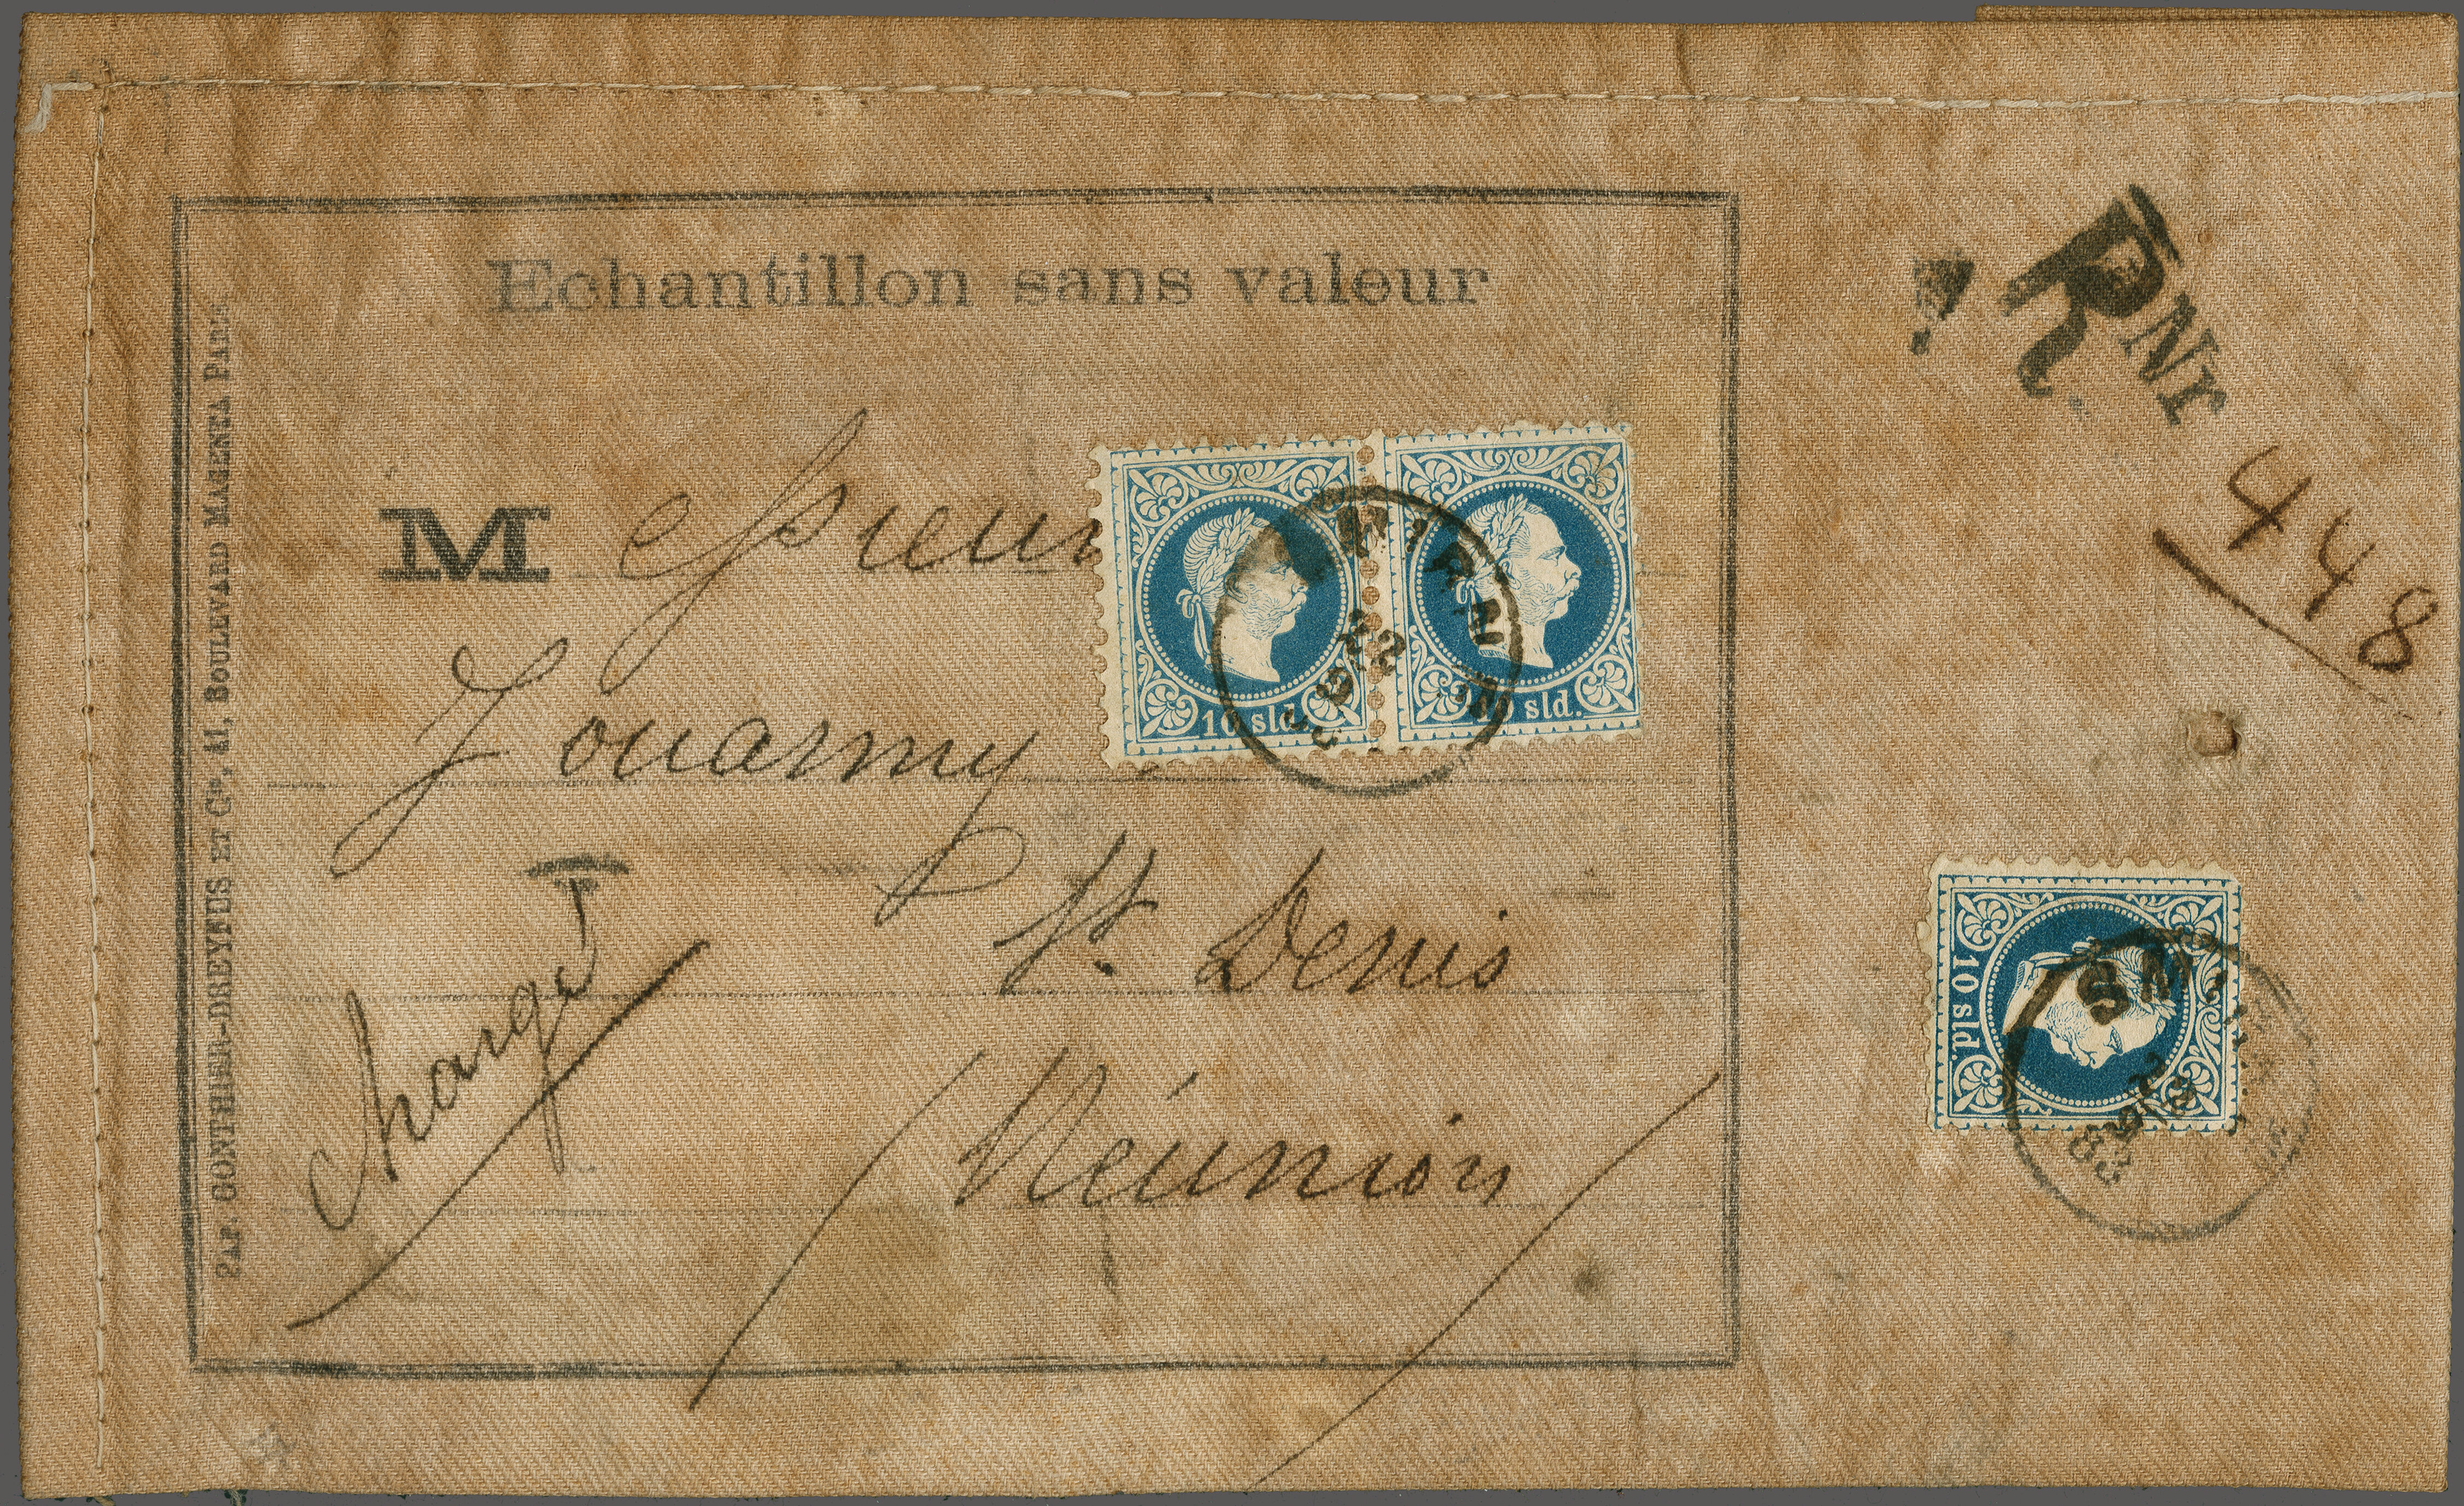 Echantillon sans valeur
PAP. GONTHIER-DREYFUS ET Cie, 41, BOULEVARD MAGENTA PARIS
Messieur
Zouarmy
St. Denis
Réunion
chargé
R Nr
448
10 sld.
10 sld.
22
SMIRNE
83
10 sld.